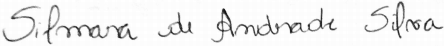 Silmara de Andrade Silva